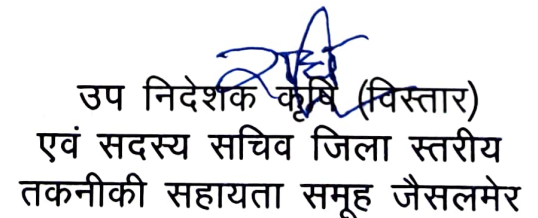 उप निदेशक कृषि (विस्तार)
एवं सदस्य सचिव जिला स्तरीय
तकनीकी सहायता समूह जैसलमेर